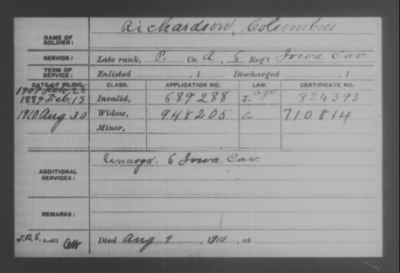 NAME OF SOLDIER: Richardson, Columbus
SERVICE: Late rank, P. Co. A, 6 Reg't Iowa Cav
TERM OF SERVICE: Enlisted , 1 Discharged , 1
DATE OF FILING. CLASS. APPLICATION NO. LAW. CERTIFICATE NO.
1889 Feb. 13 Invalid, 689288 824393
1910 Aug 30 Widow, 948205 710814
Minor,
ADDITIONAL SERVICES: Unasgd. 6 Iowa Cav.
REMARKS:
Died Aug 9, 1910, at